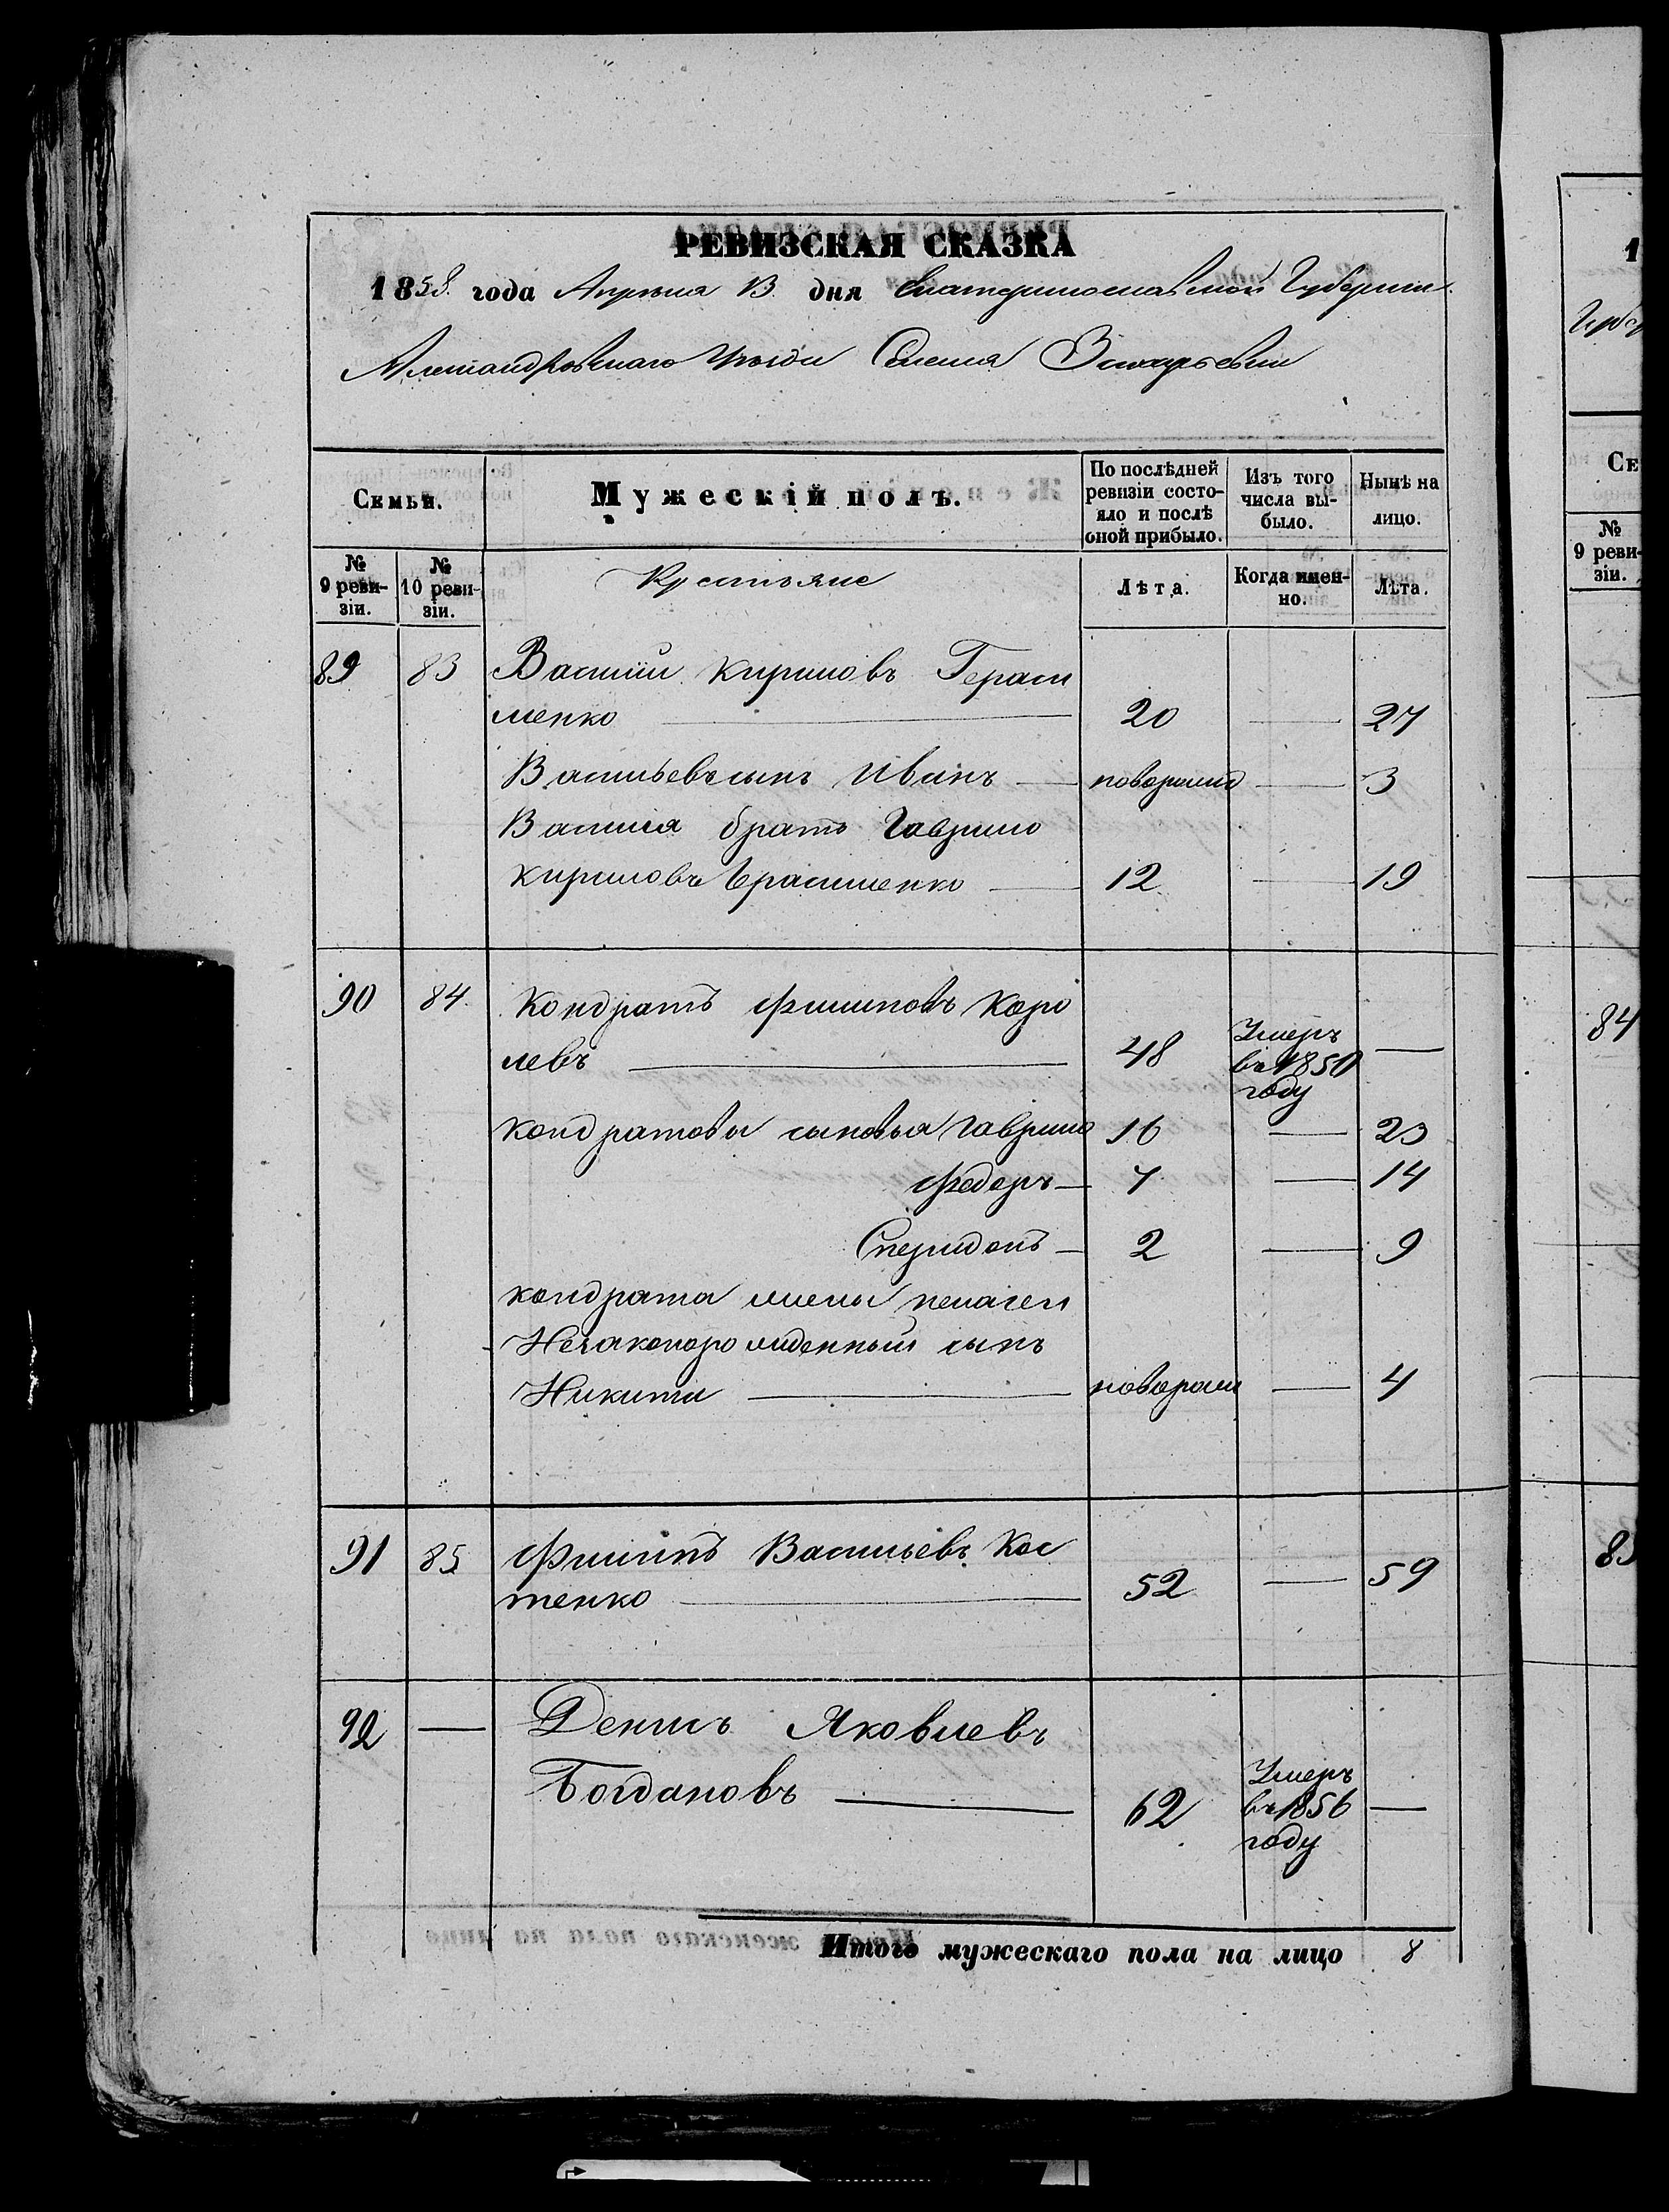 РЕВИЗСКАЯ СКАЗКА
1858 года Апрѣля 13 дня Екатеринославской Губернiи
Александровскаго Уѣзда Селенiя Захарьевки
Семьи.
Мужескiй полъ.
По послѣдней ревизiи состояло и послѣ оной прибыло.
Изъ того числа выбыло.
Нынѣ на лицо.
№ 9 ревизiи.
№ 10 ревизiи.
Крестьяне
Лѣта.
Когда именно.
Лѣта.
89 83 Василiй Кириловъ Гераси
менко — 20 — 27
Васильевъ сынъ Иванъ — новорожд — 3
Василiя братъ Гаврило
Кириловъ Ерасименко — 12 — 19
90 84 Кондратъ Филиповъ Коро
левъ — 48 Умеръ въ 1850 году —
Кондратовы сыновья Гаврило 16 — 23
Федоръ — 7 — 14
Спиридонъ — 2 — 9
Кондрата жены Пелагеи
Незаконорожденный сынъ
Никита — новорож — 4
91 85 Филипъ Васильевъ Кос
тенко — 52 — 59
92 — Денисъ Яковлевъ
Богдановъ — 62 Умеръ въ 1856 году —
Итого мужескаго пола на лицо 8
1
Се
№
9 реви-
зiи.
84
85